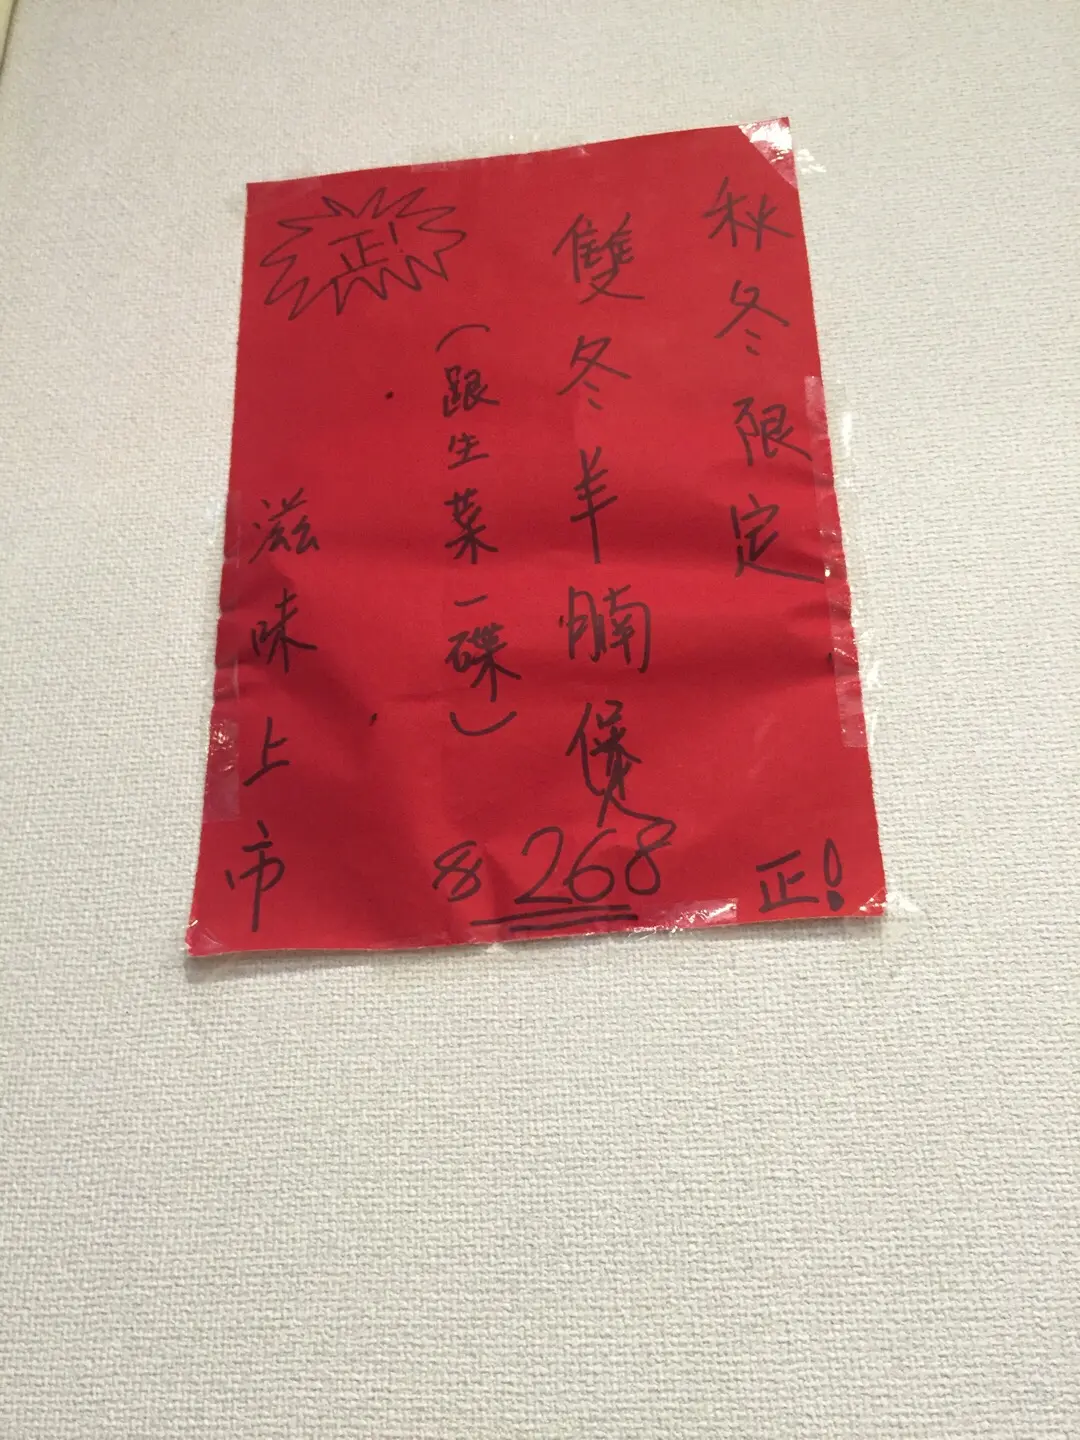 秋冬限定
正!
雙冬羊腩煲
$268
(跟生菜一碟)
正!
滋味上市